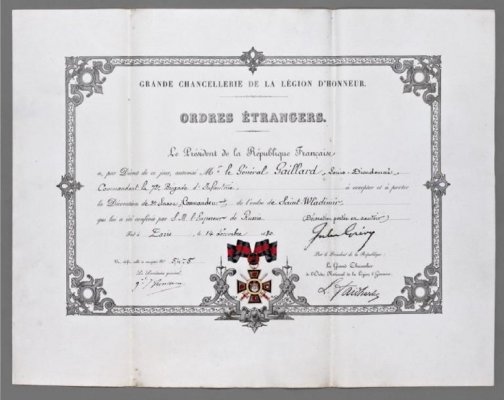 GRANDE CHANCELLERIE DE LA LÉGION D'HONNEUR.
ORDRES ÉTRANGERS.
Le Président de la République Française
a, par Décret de ce jour, autorisé Mr. le Général Gaillard,
Commandant la Brigade d'Infanterie à accepter et à porter
la Décoration de Commandeur, de l'ordre de Saint-Wladimir
qui lui a été conférée par S. M. l'Empereur de Russie (Décoration portée en sautoir)
Fait à Paris le 14 décembre
Jules Grévy
Par le Président de la République:
Le Grand Chancelier
de l'Ordre National de la Légion d'Honneur,
Vu, scellé et enregistré No.
Le Secrétaire général,